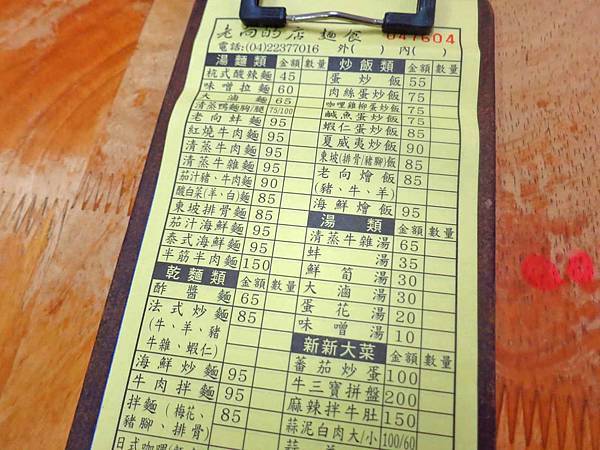 老向的店 麵食 047604
電話:(04)22377016 外( ) 內( )
湯麵類 金額 數量
杭式酸辣麵 45
味噌拉麵 60
大滷麵 65
清蒸鴨麵胸/腿 75/100
老向蚌麵 95
紅燒牛肉麵 95
清蒸牛肉麵 95
清蒸牛雜麵 95
茄汁豬、牛肉麵 90
酸白菜(羊、白)麵 85
東坡排骨麵 85
茄汁海鮮麵 95
泰式海鮮麵 95
半筋半肉麵 150
乾麵類 金額 數量
酢醬麵 65
法式炒麵 85
(牛、羊、豬
牛雜、蝦仁)
海鮮炒麵 95
牛肉拌麵 95
拌麵(梅花、 85
豬腳、排骨)
炒飯類 金額 數量
蛋炒飯 55
肉絲蛋炒飯 75
咖哩雞柳蛋炒飯 75
鹹魚蛋炒飯 75
蝦仁蛋炒飯 85
夏威夷炒飯 90
東坡(排骨/豬腳)飯 85
老向燴飯 85
(豬、牛、羊)
海鮮燴飯 95
湯類 金額 數量
清蒸牛雜湯 65
蚌湯 35
鮮筍湯 30
大滷湯 30
蛋花湯 20
味噌湯 10
新新大菜 金額 數量
蕃茄炒蛋 100
牛三寶拼盤 200
麻辣拌牛肚 150
蒜泥白肉大/小 100/60